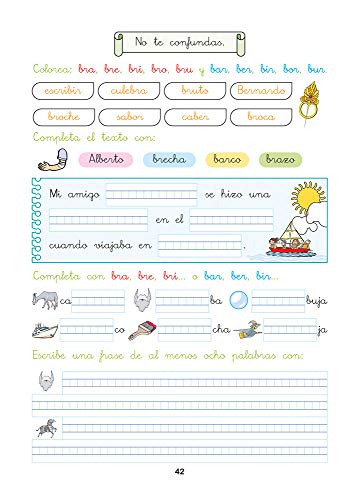 No te confundas.
Colorea: bra, bre, bri, bro, bru y bar, ber, bir, bor, bur.
escribir culebra bruto Bernardo
broche sabor caber broca
Completa el texto con:
Alberto brecha barco brazo
Mi amigo se hizo una
en el
cuando viajaba en .
Completa con bra, bre, bri... o bar, ber, bir...
ca ba buja
co cha ja
Escribe una frase de al menos ocho palabras con:
42